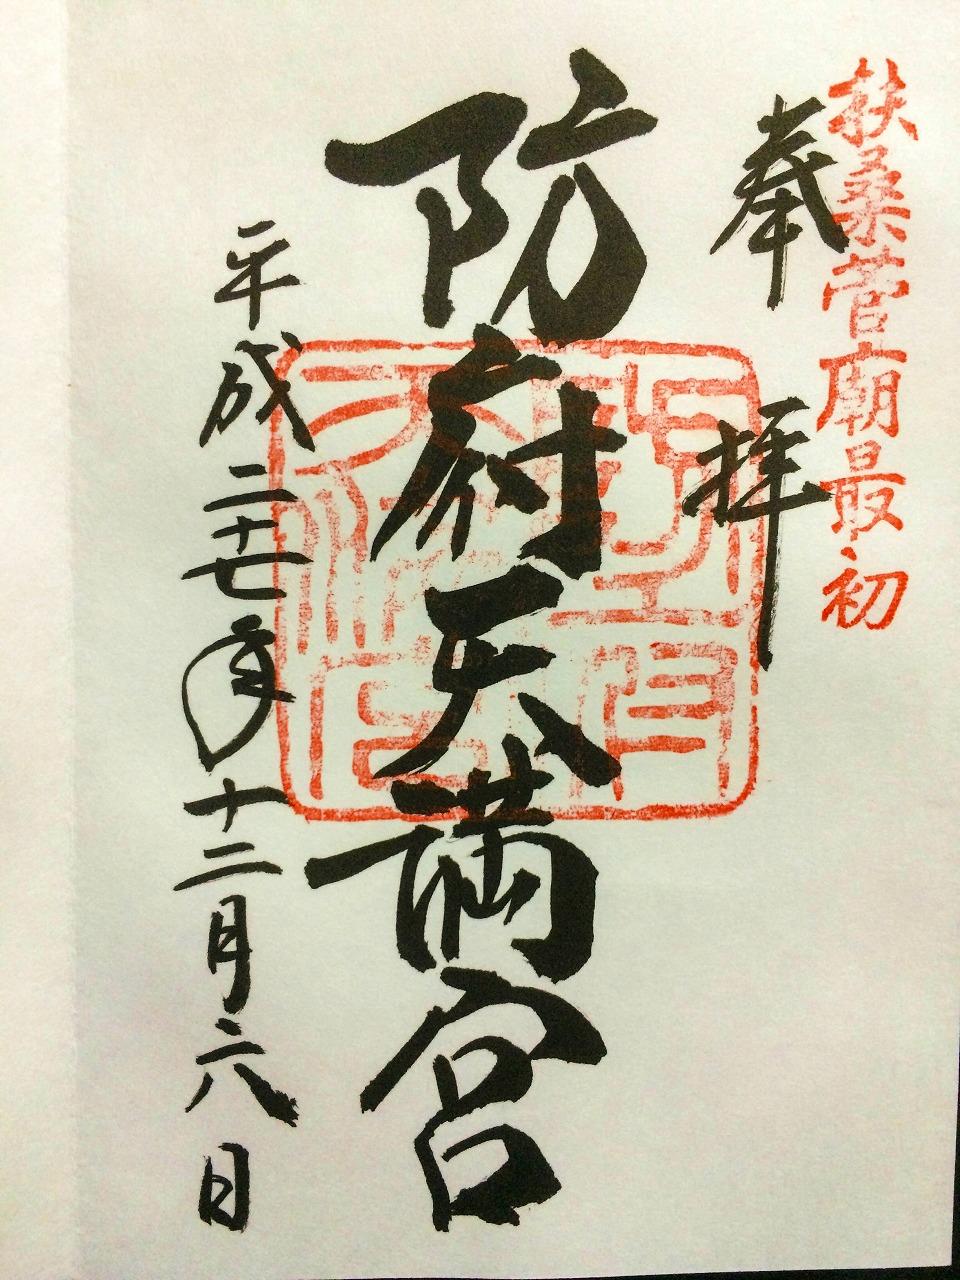 扶桑菅廟最初
奉拝
防府天満宮
平成二十七年十二月六日